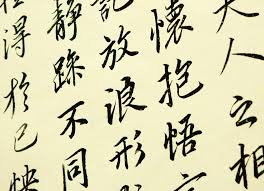 夫人之相
懷抱悟言
放浪形
靜躁不同
得於己快